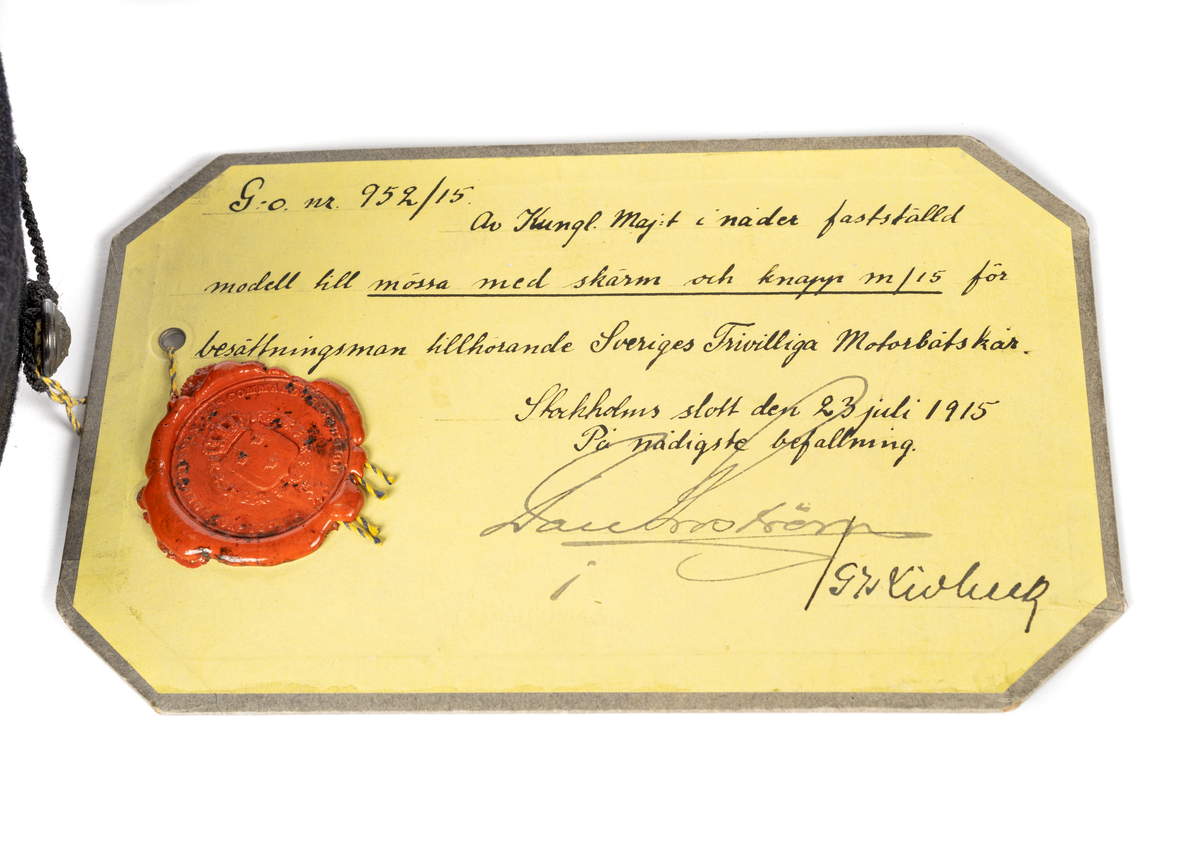 G:o. nr. 952/15.
Av Kungl. Maj:t i nåder fastställd
modell till mössa med skärm och knapp m/15 för
besättningsman tillhörande Sveriges Frivilliga Motorbåtskår.
Stockholms slott den 23 juli 1915
På nådigste befallning.
Dan Broström